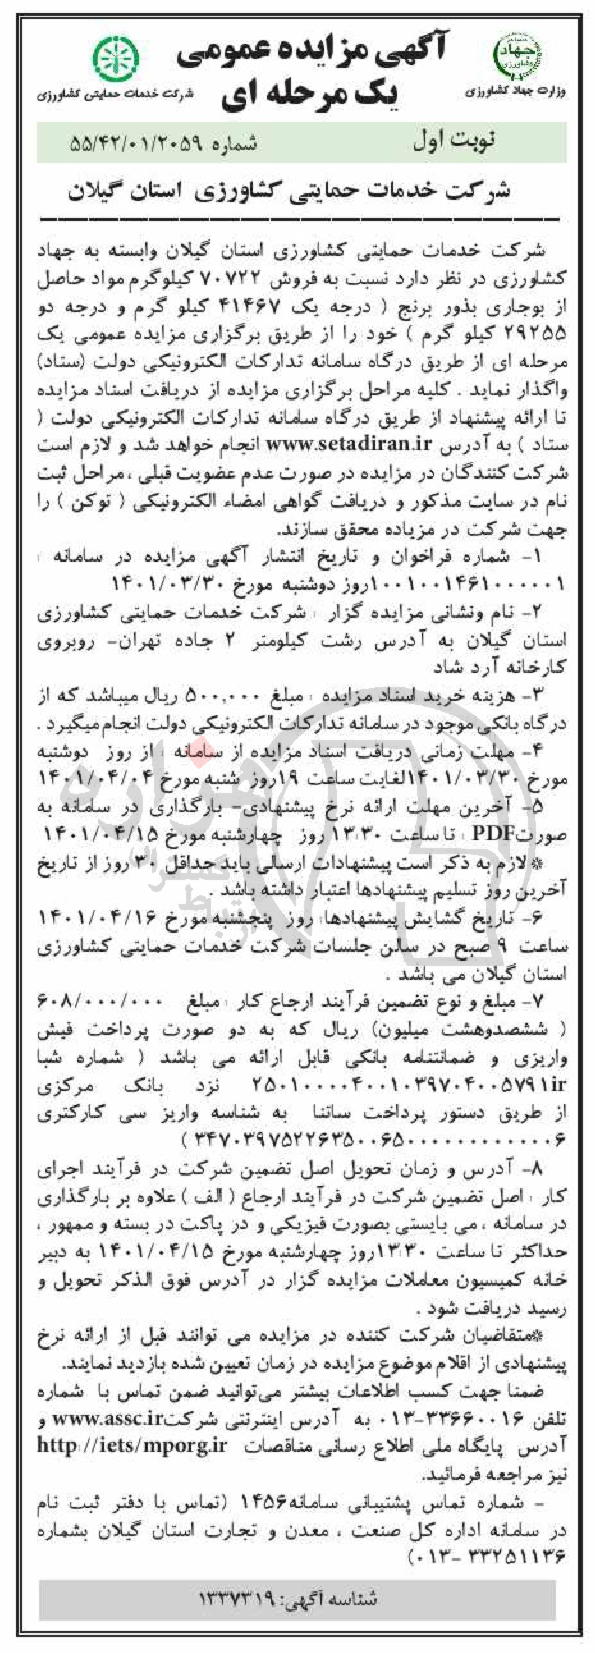 آگهی مزایده عمومی
یک مرحله ای
وزارت جهاد کشاورزی
شرکت خدمات حمایتی کشاورزی
نوبت اول
شماره ۵۵/۴۲/۰۱/۲۰۵۹
شرکت خدمات حمایتی کشاورزی استان گیلان
شرکت خدمات حمایتی کشاورزی استان گیلان وابسته به جهاد
کشاورزی در نظر دارد نسبت به فروش ۷۰۷۲۲ کیلوگرم مواد حاصل
از بوجاری بذور برنج ( درجه یک ۴۱۴۶۷ کیلو گرم و درجه دو
۲۹۲۵۵ کیلو گرم ) خود را از طریق برگزاری مزایده عمومی یک
مرحله ای از طریق درگاه سامانه تدارکات الکترونیکی دولت (ستاد)
واگذار نماید . کلیه مراحل برگزاری مزایده از دریافت اسناد مزایده
تا ارائه پیشنهاد از طریق درگاه سامانه تدارکات الکترونیکی دولت (
ستاد ) به آدرس www.setadiran.ir انجام خواهد شد و لازم است
شرکت کنندگان در مزایده در صورت عدم عضویت قبلی ، مراحل ثبت
نام در سایت مذکور و دریافت گواهی امضاء الکترونیکی ( توکن ) را
جهت شرکت در مزیاده محقق سازند.
۱- شماره فراخوان و تاریخ انتشار آگهی مزایده در سامانه :
۱۰۰۱۰۰۱۴۶۱۰۰۰۰۰۱ روز دوشنبه مورخ ۱۴۰۱/۰۳/۳۰
۲- نام ونشانی مزایده گزار : شرکت خدمات حمایتی کشاورزی
استان گیلان به آدرس رشت کیلومتر ۲ جاده تهران- روبروی
کارخانه آرد شاد
۳- هزینه خرید اسناد مزایده : مبلغ ۵۰۰,۰۰۰ ریال میباشد که از
درگاه بانکی موجود در سامانه تدارکات الکترونیکی دولت انجام میگیرد .
۴- مهلت زمانی دریافت اسناد مزایده از سامانه : از روز دوشنبه
مورخ ۱۴۰۱/۰۳/۳۰ لغایت ساعت ۱۹ روز شنبه مورخ ۱۴۰۱/۰۴/۰۴
۵- آخرین مهلت ارائه نرخ پیشنهادی- بارگذاری در سامانه به
صورت PDF : تا ساعت ۱۳:۳۰ روز چهارشنبه مورخ ۱۴۰۱/۰۴/۱۵
*لازم به ذکر است پیشنهادات ارسلی باید حداقل ۳۰ روز از تاریخ
آخرین روز تسلیم پیشنهادها اعتبار داشته باشد .
۶- تاریخ گشایش پیشنهادها: روز پنجشنبه مورخ ۱۴۰۱/۰۴/۱۶
ساعت ۹ صبح در سالن جلسات شرکت خدمات حمایتی کشاورزی
استان گیلان می باشد .
۷- مبلغ و نوع تضمین فرآیند ارجاع کار : مبلغ ۶۰۸/۰۰۰/۰۰۰
( ششصدوهشت میلیون) ریال که به دو صورت پرداخت فیش
واریزی و ضمانتنامه بانکی قابل ارائه می باشد ( شماره شبا
ir۲۵۰۱۰۰۰۰۴۰۰۱۰۳۹۷۰۴۰۰۵۷۹۱ نزد بانک مرکزی
از طریق دستور پرداخت ساتنا به شناسه واریز سی کارکتری
۳۴۷۰۳۹۷۵۲۲۶۳۵۰۰۶۵۰۰۰۰۰۰۰۰۰۰۰۰۶ )
۸- آدرس و زمان تحویل اصل تضمین شرکت در فرآیند اجرای
کار : اصل تضمین شرکت در فرآیند ارجاع ( الف ) علاوه بر بارگذاری
در سامانه ، می بایستی بصورت فیزیکی و در پاکت در بسته و ممهور ،
حداکثر تا ساعت ۱۳:۳۰ روز چهارشنبه مورخ ۱۴۰۱/۰۴/۱۵ به دبیر
خانه کمیسیون معاملات مزایده گزار در آدرس فوق الذکر تحویل و
رسید دریافت شود .
*متقاضیان شرکت کننده در مزایده می توانند قبل از ارائه نرخ
پیشنهادی از اقلام موضوع مزایده در زمان تعیین شده بازدید نمایند.
ضمنا جهت کسب اطلاعات بیشتر می‌توانید ضمن تماس با شماره
تلفن ۳۳۶۶۰۰۱۶-۰۱۳ به آدرس اینترنتی شرکت www.assc.ir و
آدرس پایگاه ملی اطلاع رسانی مناقصات http://iets/mporg.ir
نیز مراجعه فرمائید.
- شماره تماس پشتیبانی سامانه ۱۴۵۶ (تماس با دفتر ثبت نام
در سامانه اداره کل صنعت ، معدن و تجارت استان گیلان بشماره
۳۳۲۵۱۱۳۶ -۰۱۳)
شناسه آگهی: ۱۳۳۷۳۱۹